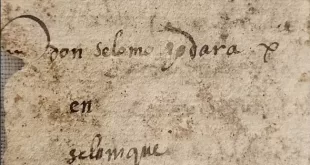 Don Selomo Jodara
en
selonique